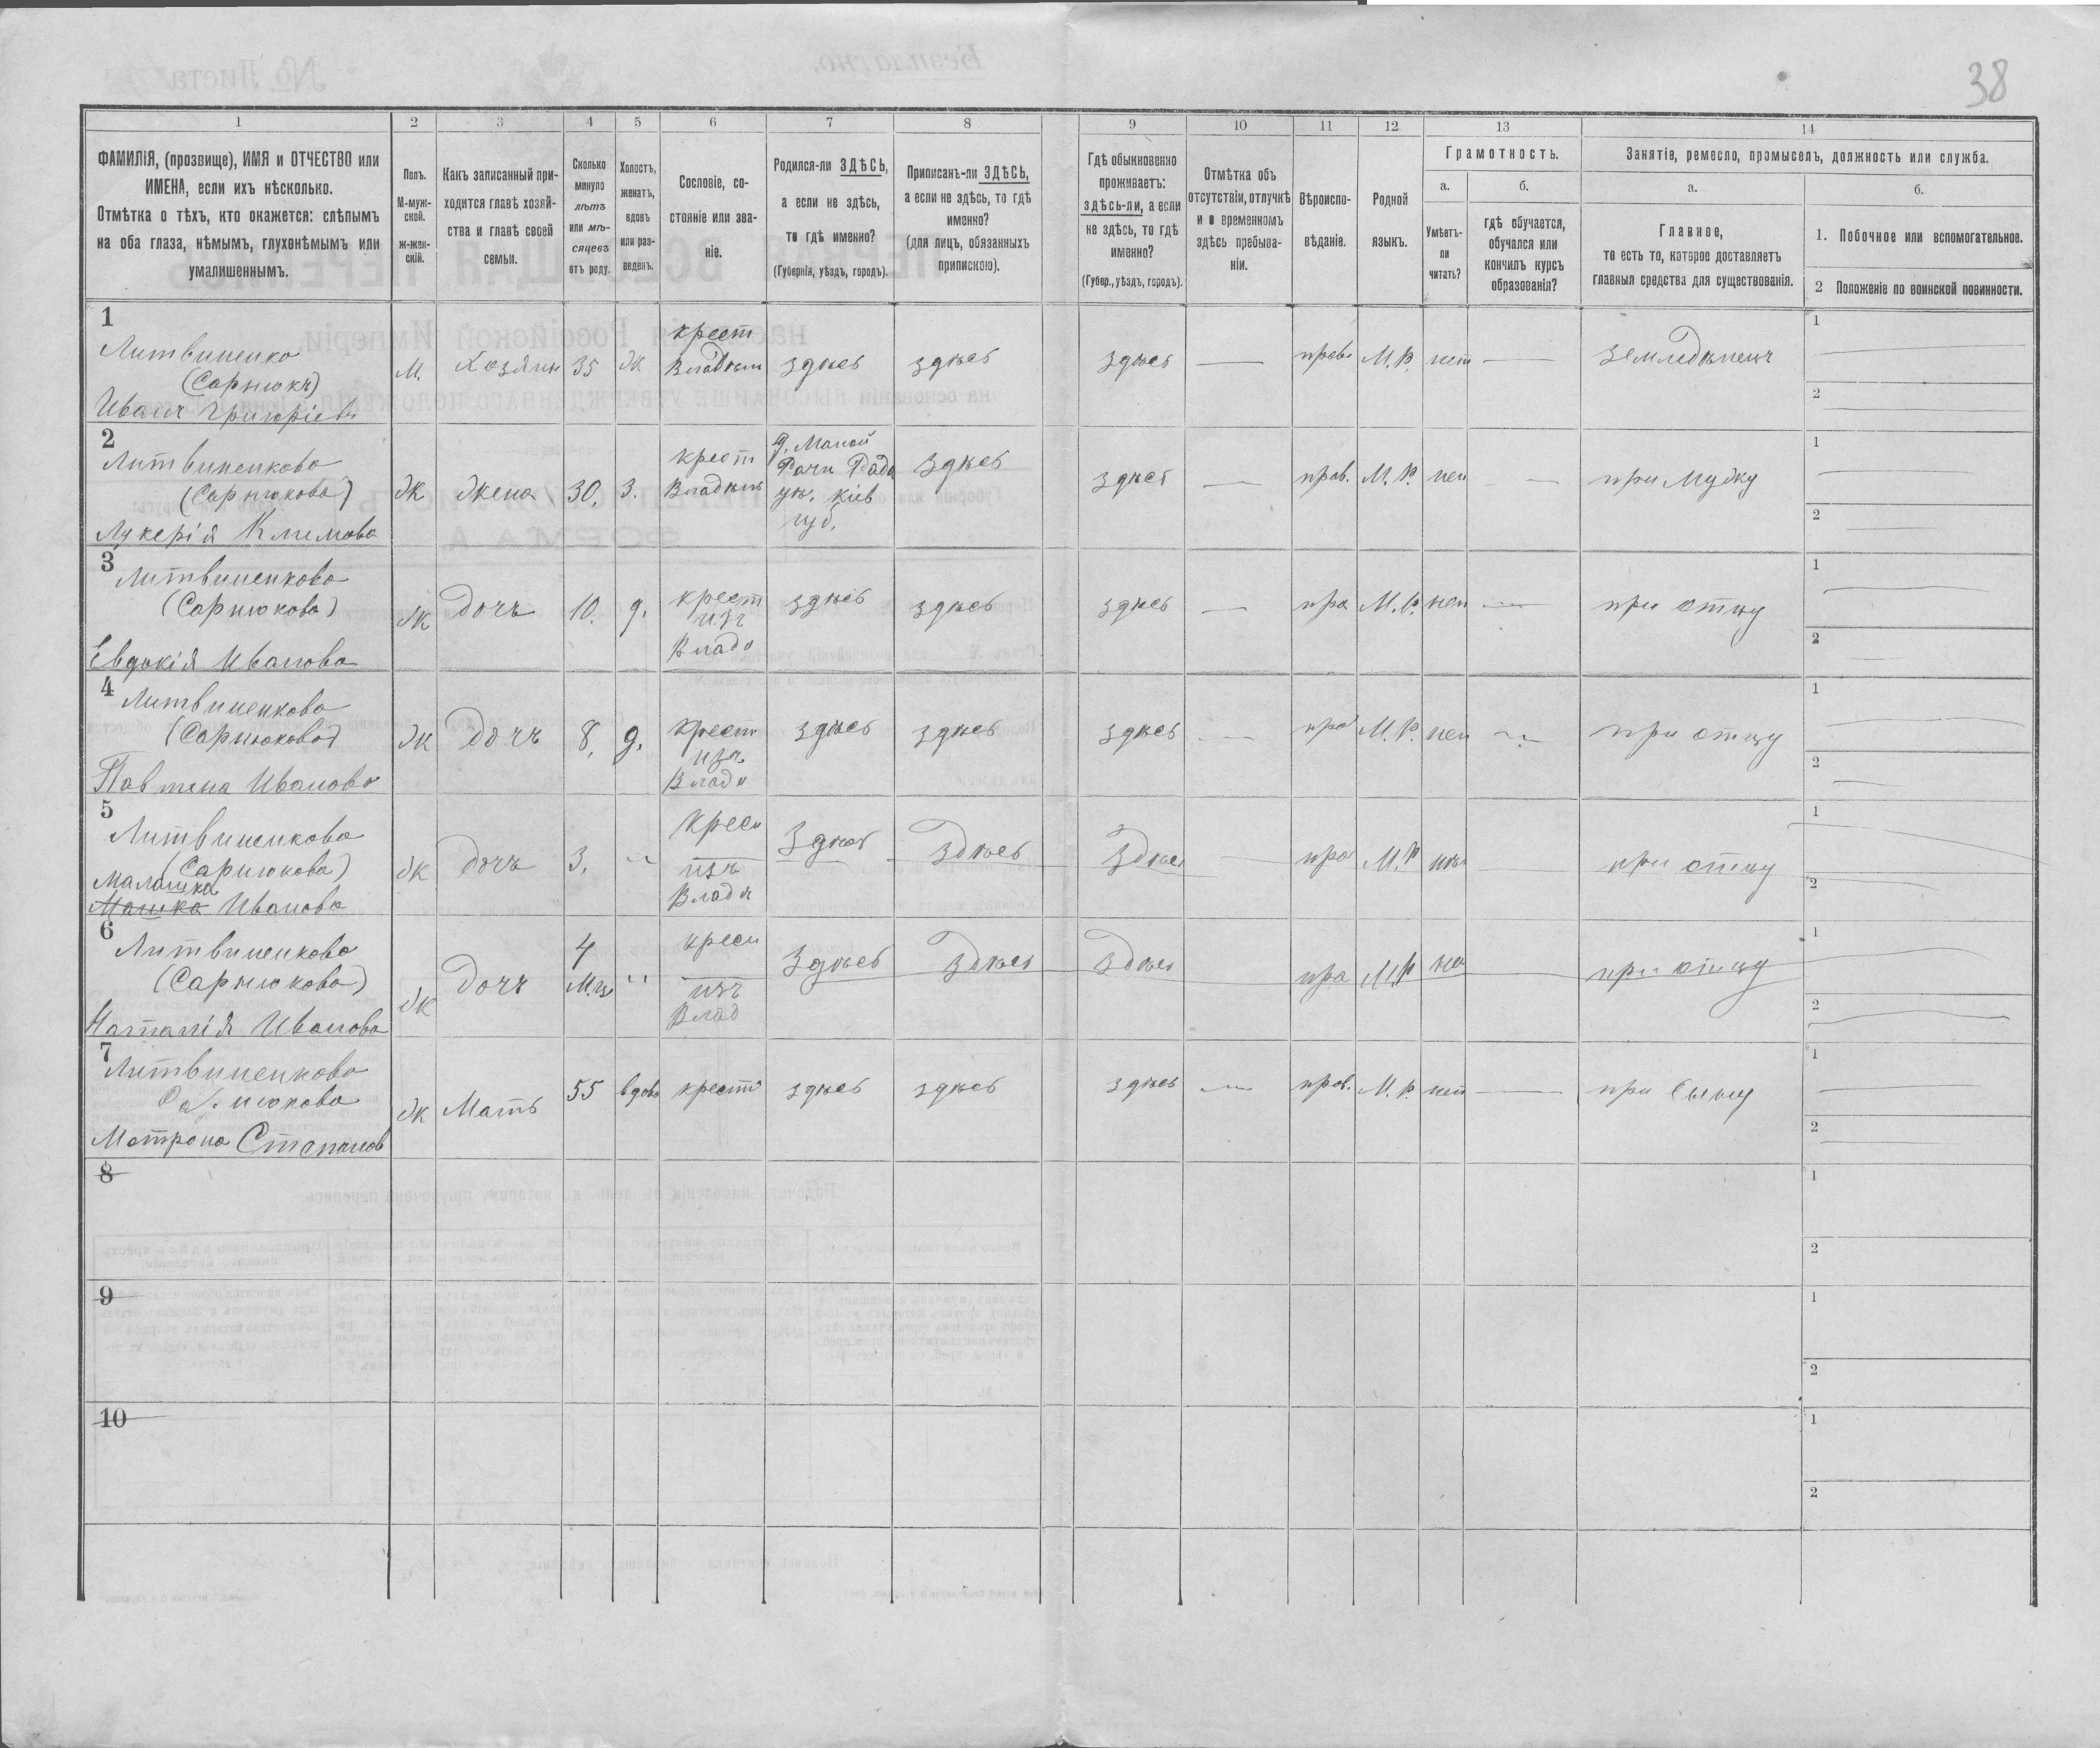 38
1 2 3 4 5 6 7 8 9 10 11 12 13 14
ФАМИЛІЯ, (прозвище), ИМЯ и ОТЧЕСТВО или
ИМЕНА, если ихъ нѣсколько.
Отмѣтка о тѣхъ, кто окажется: слѣпымъ
на оба глаза, нѣмымъ, глухонѣмымъ или
умалишеннымъ.
Полъ.
М-муж-
ской.
ж-жен-
скій.
Какъ записанный при-
ходится главѣ хозяй-
ства и главѣ своей
семьи.
Сколько
минуло
лѣтъ
или мѣ-
сяцевъ
отъ роду.
Холостъ,
женатъ,
вдовъ
или раз-
веденъ.
Сословіе, со-
стояніе или зва-
ніе.
Родился-ли ЗДѢСЬ,
а если не здѣсь,
то гдѣ именно?
(Губернія, уѣздъ, городъ).
Приписанъ-ли ЗДѢСЬ,
а если не здѣсь, то гдѣ
именно?
(для лицъ, обязанныхъ
припискою).
Гдѣ обыкновенно
проживаетъ:
здѣсь-ли, а если
не здѣсь, то гдѣ
именно?
(Губер., уѣздъ, городъ).
Отмѣтка объ
отсутствіи, отлучкѣ
и о временномъ
здѣсь пребыва-
ніи.
Вѣроиспо-
вѣданіе.
Родной
языкъ.
Грамотность.
а.
Умѣетъ-
ли
читать?
б.
гдѣ обучается,
обучался или
кончилъ курсъ
образованія?
Занятіе, ремесло, промыселъ, должность или служба.
а.
Главное,
то есть то, которое доставляетъ
главныя средства для существованія.
б.
1. Побочное или вспомогательное.
2 Положеніе по воинской повинности.
1
Литвиненко
(Сарнюкъ)
Иванъ Григоріевъ
М. Хозяин 35 Ж
крест
Владѣл
здѣсь здѣсь здѣсь — прав М.Р. нет — земледѣлецъ
1
2
2
Литвиненкова
(Сарнюкова)
Лукерія Климова
Ж Жена 30. З.
крест
Владѣл
д. Малой
Рачи Рад
уѣ. Кіев
губ.
здѣсь здѣсь — прав. М.Р. нет — при мужу
1
2
3
Литвиненкова
(Сарнюкова)
Евдокія Иванова
Ж дочь 10. д.
крест
изъ
Влад
здѣсь здѣсь здѣсь — пра М.Р. нет — при отцу
1
2
4
Литвиненкова
(Сарнюкова)
Иванова
Ж дочь 8. д.
крест
изъ
Влад
здѣсь здѣсь здѣсь — пра М.Р. нет — при отцу
1
2
5
Литвиненкова
(Сарнюкова)
Малашка
Машка Иванова
Ж дочь 3. "
крест
изъ
Влад
Здѣсь Здѣсь Здѣсь пра М.Р при отцу
1
2
6
Литвиненкова
(Сарнюкова)
Наталія Иванова
Ж дочь
4
М.ц "
крест
изъ
Влад
Здѣсь Здѣсь Здѣсь пра М.Р не при отцу
1
2
7
Литвиненкова
Сарнюкова
Матрона Степанов
Ж Мать 55 вдова крест здѣсь здѣсь здѣсь — прав. М.Р. нет — при сыну
1
2
8
1
2
9
1
2
10
1
2